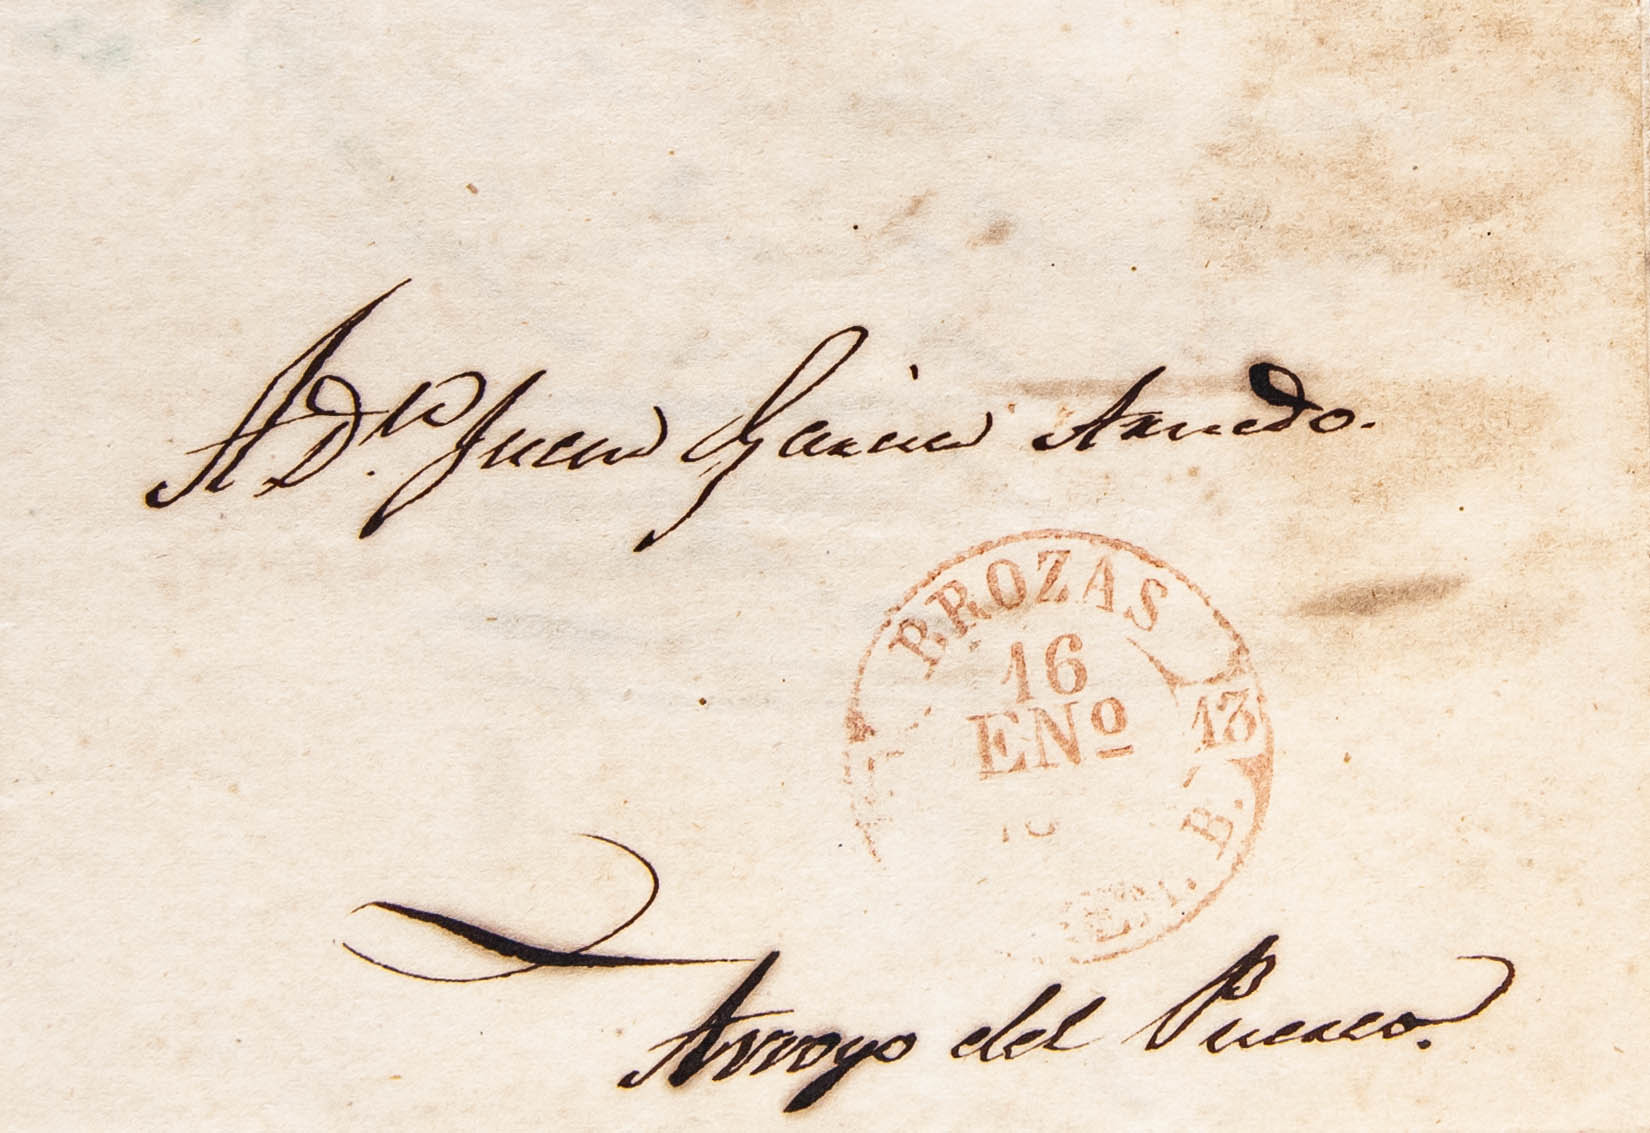 A D.n Juan Garcia Arnedo.
BROZAS
16
ENO
13
EST. B.
Arroyo del Puerco.